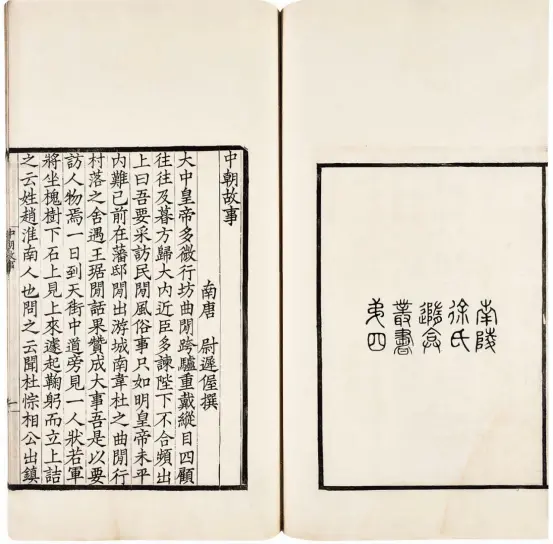 南陵
徐氏
隨盦
叢書
弟四
中朝故事
南唐 尉遲偓撰
大中皇帝多微行坊曲閒跨驢重戴縱目四顧
往往及暮方歸大內近臣多諫陛下不合頻出
上曰吾要采訪民閒風俗事只如明皇帝未平
內難已前在藩邸閒出游城南韋杜之曲閒行
村落之舍遇王琚閒話果贊成大事吾是以要
訪人物焉一日到天街中道旁見一人狀若軍
將坐槐樹下石上見上來遽起鞠躬而立上詰
之云姓趙淮南人也問之云聞杜悰相公出鎮
中朝故事 一